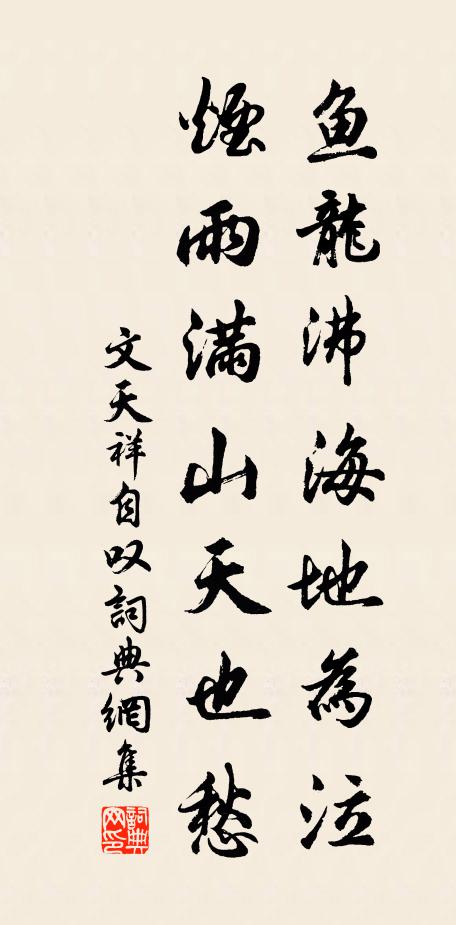 鱼龍沸海地為泣
煙雨滿山天也愁
文天祥自叹詞典網集
詞典網印